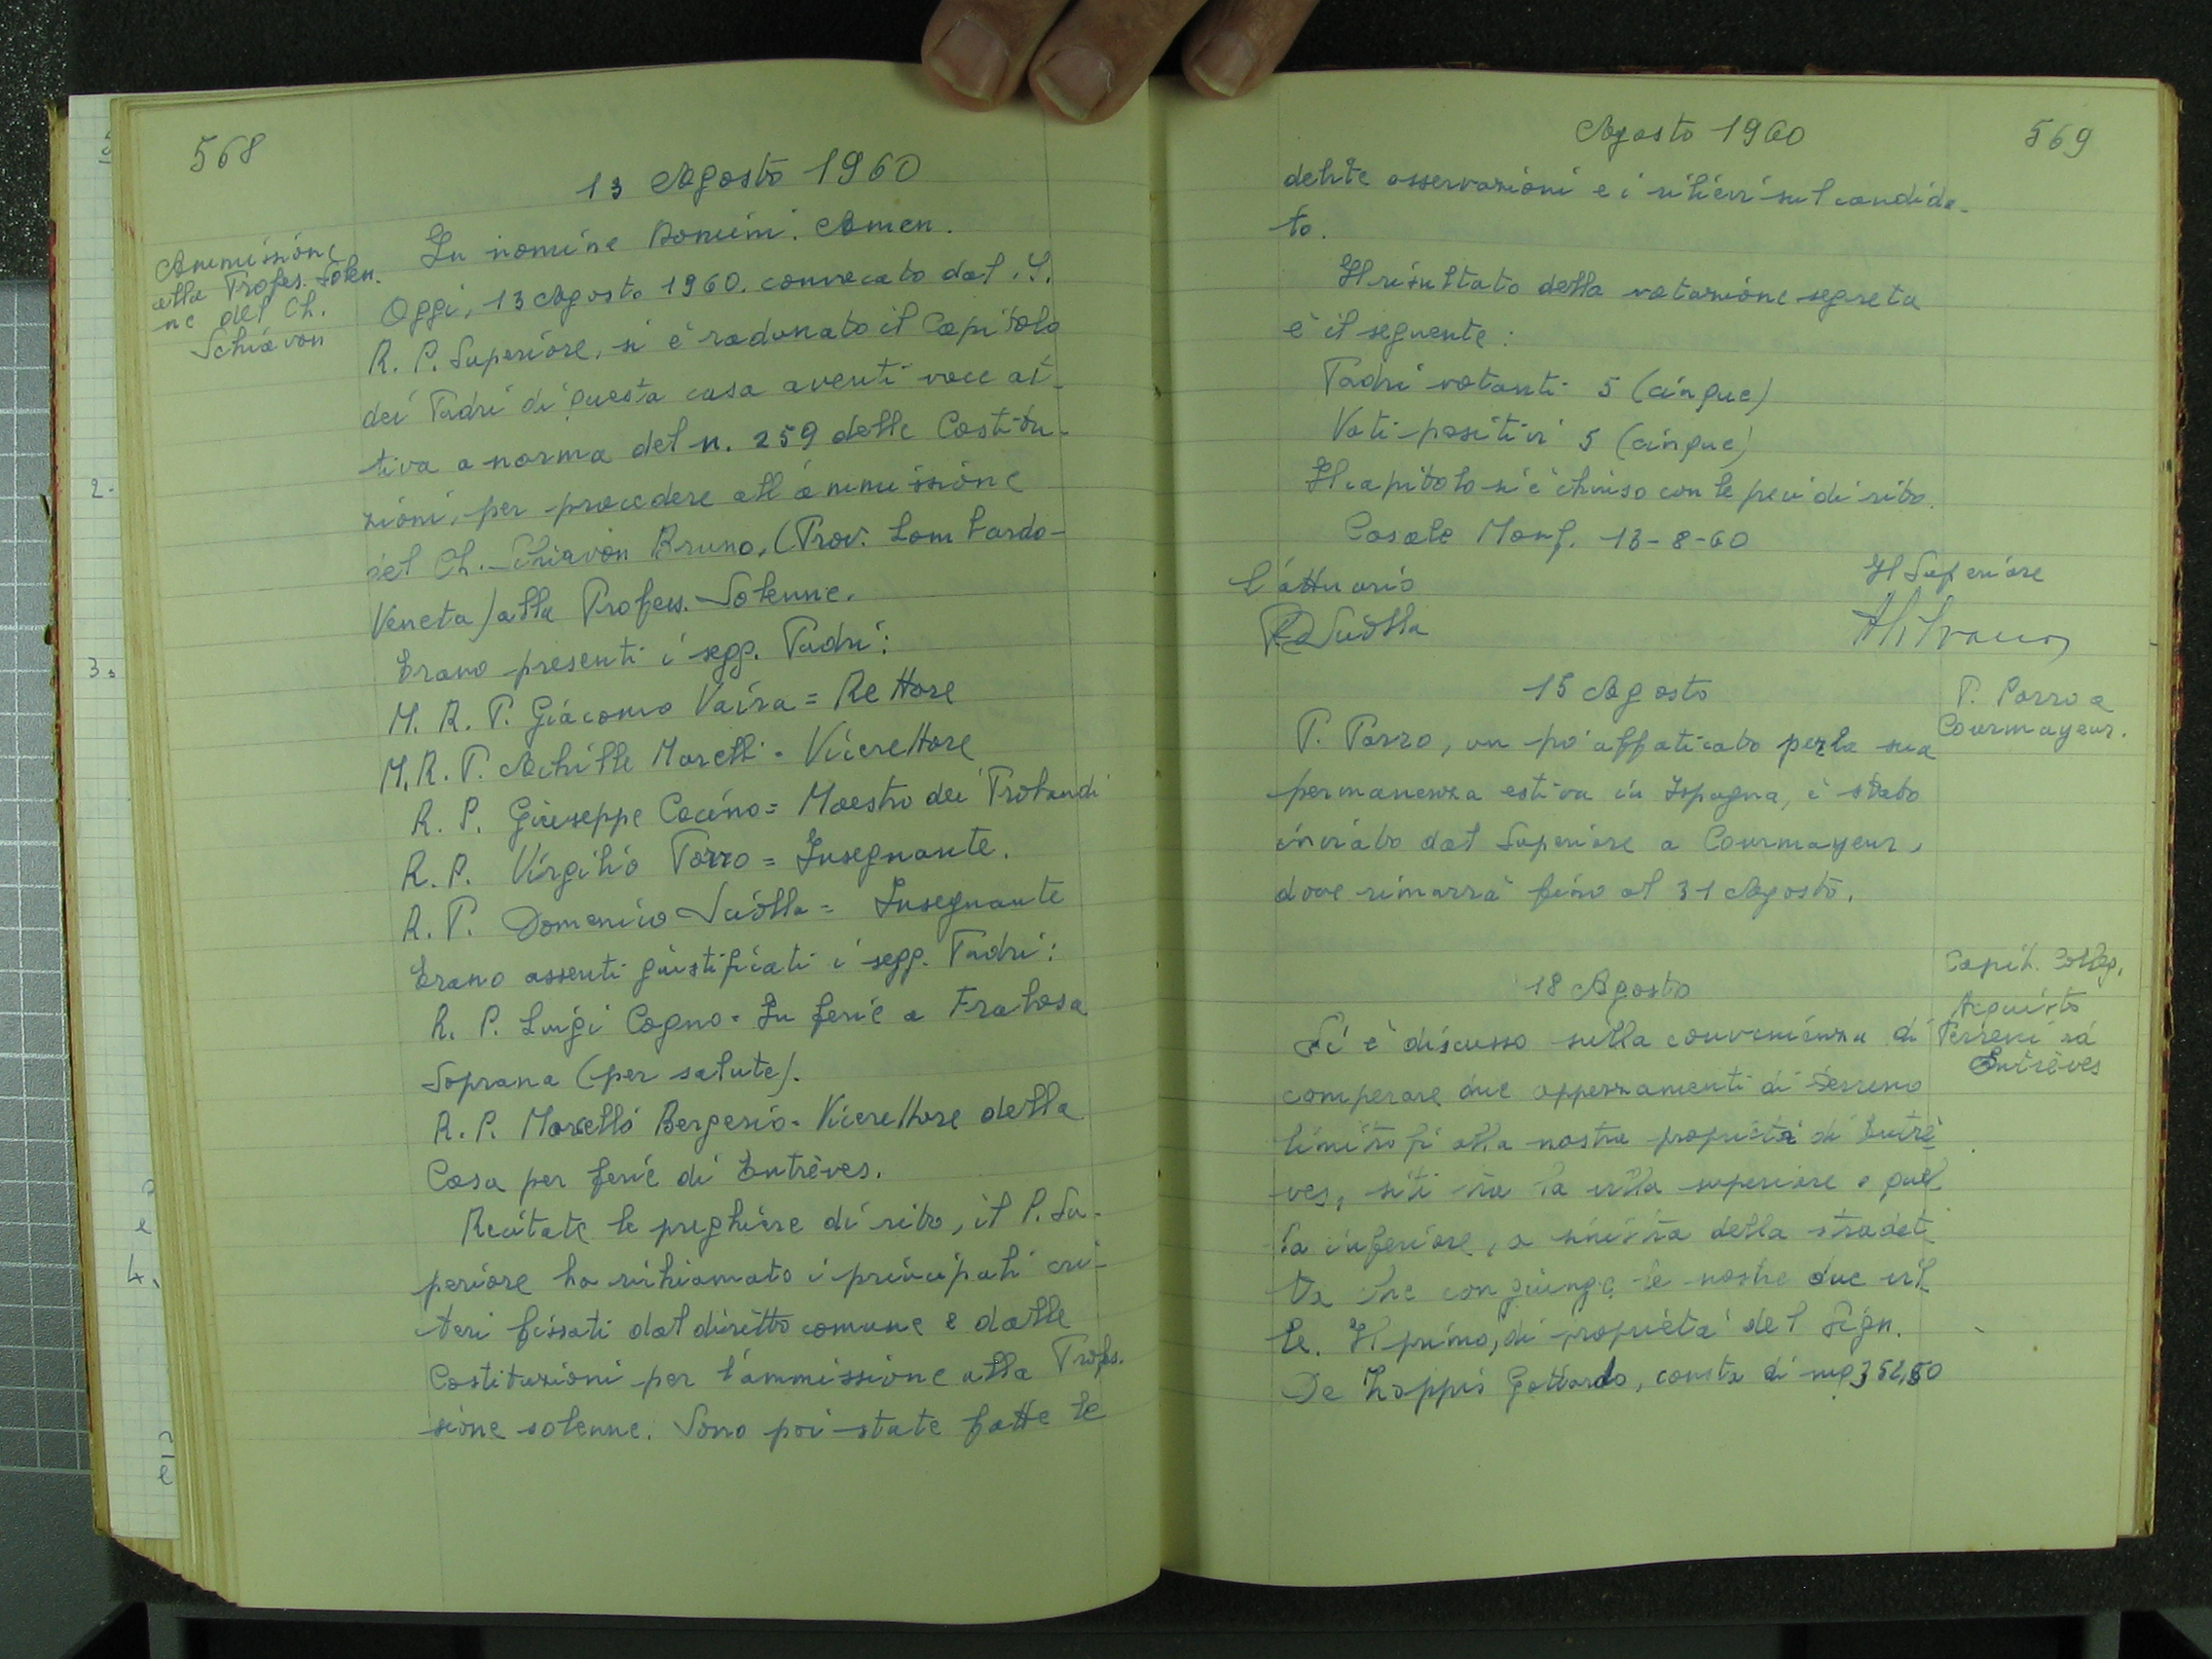 568
13 Agosto 1960
Ammissione
alla Profes. Solen.
ne del Ch.
Schiavon
In nomine Domini. Amen.
Oggi, 13 Agosto 1960. convocato dal
R. P. Superiore, si è radunato il Capitolo
dei Padri di questa casa aventi voce at-
tiva a norma del n. 259 delle Costitu-
zioni, per procedere all'ammissione
del Ch. Schiavon Bruno, (Prov. Lombardo-
Veneta) alla Profess. Solenne.
Erano presenti i segg. Padri:
M. R. P. Giacomo Vaira = Rettore
M. R. P. Achille Marelli - Vicerettore
R. P. Giuseppe Cocino = Maestro dei Probandi
R. P. Virgilio Porro = Insegnante.
R. P. Domenico Sciolla = Insegnante
Erano assenti giustificati i segg. Padri:
R. P. Luigi Cagno - In ferie a Frabosa
Soprana (per salute).
R. P. Marcello Bergesio - Vicerettore della
Casa per ferie di Entrèves.
Recitate le preghiere di rito, il P. Su-
periore ha richiamato i principali cri-
teri fissati dal diritto comune e dalle
Costituzioni per l'ammissione alla Profes-
sione solenne. Sono poi state fatte le
Agosto 1960
569
debite osservazioni e i rilievi sul candida-
to.
Il risultato della votazione segreta
è il seguente:
Padri votanti 5 (cinque)
Voti positivi 5 (cinque)
Il capitolo si è chiuso con le preci di rito.
Casale Monf. 13-8-60
l'attuario
Il Superiore
P D Sciolla
15 Agosto
P. Porro a
Courmayeur.
P. Porro, un po' affaticato per la sua
permanenza estiva in Ispagna, è stato
inviato dal Superiore a Courmayeur,
dove rimarrà fino al 31 Agosto.
18 Agosto
Capit. Colleg.
Acquisto
Terreni ad
Entrèves
Si è discusso sulla convenienza di
comperare due appezzamenti di terreno
limitrofi alla nostra proprietà di Entrè-
ves, siti tra la villa superiore e quel-
la inferiore, a sinistra della stradet-
ta che congiunge le nostre due vil-
le. Il primo, di proprietà del Sign.
De Zoppis Gottardo, consta di mq 352,50